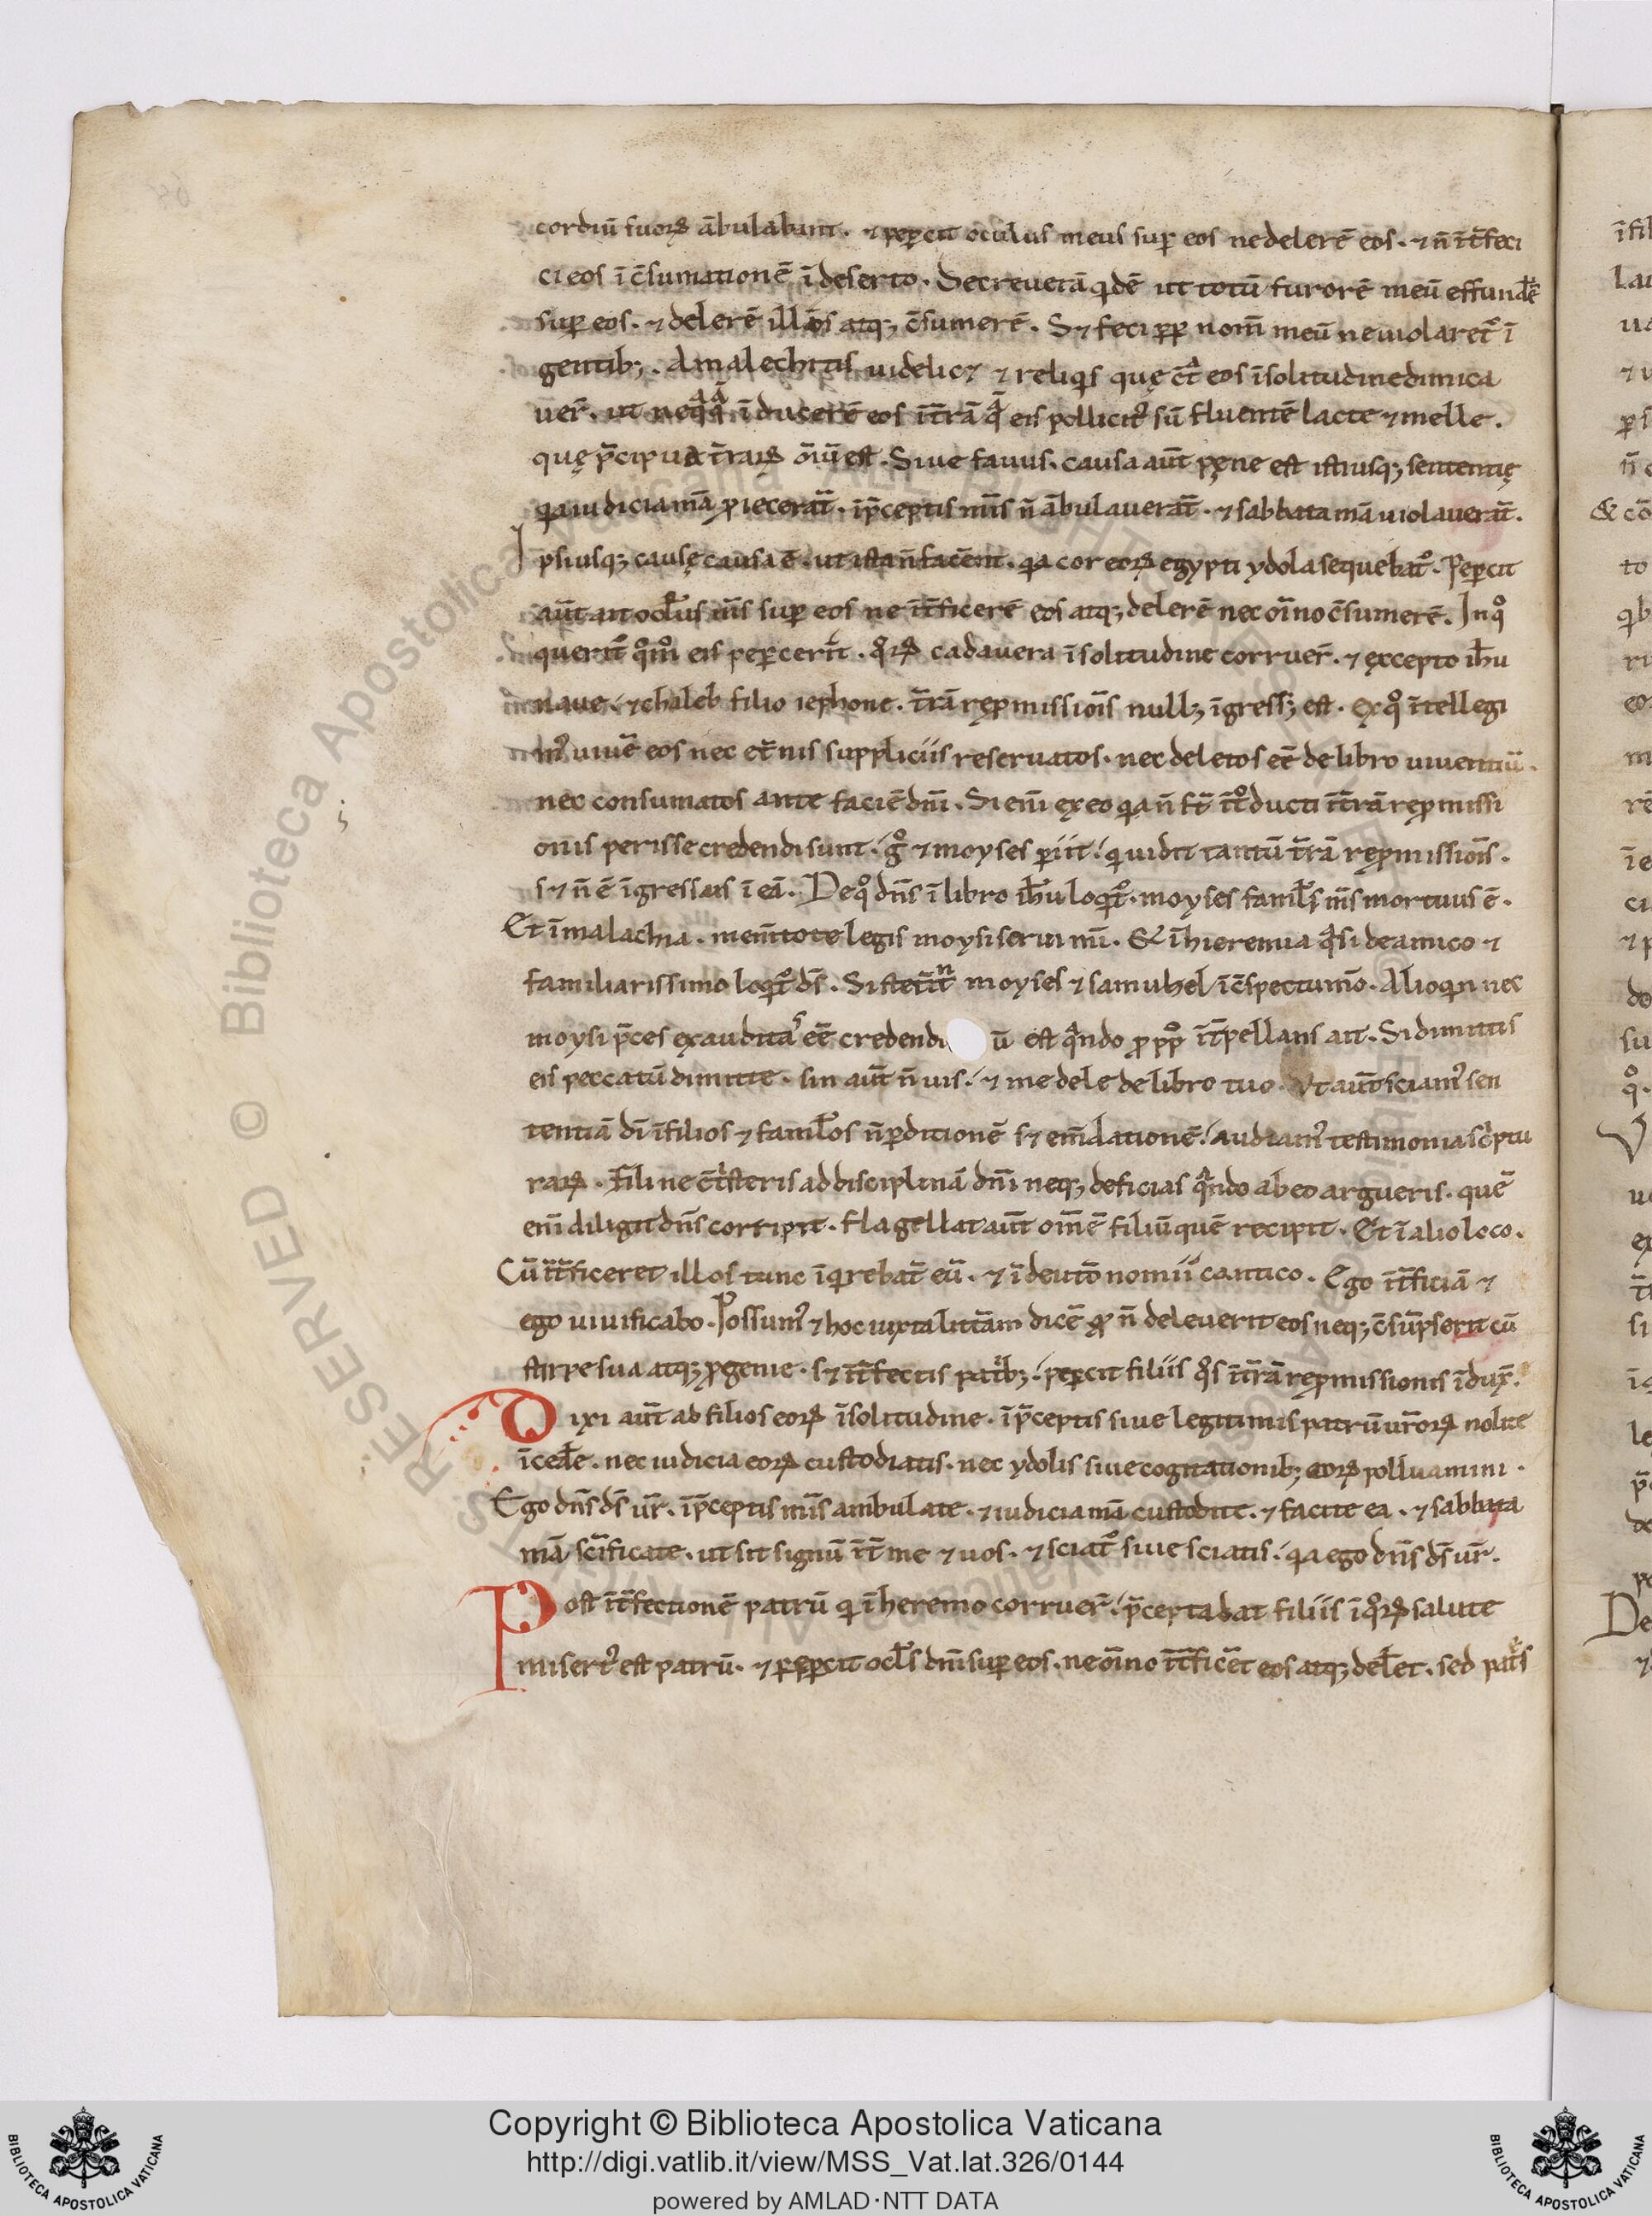 cordiū suoꝝ ābulabant. ⁊ peꝑcit oculus meus suꝑ eos ne delerē eos. ⁊ n̄ īt̄feci
ci eos ī c̄sumationē ī deserto. Decreuerā qdē ut totū furorē meū effundēr̄
suꝑ eos. ⁊ delerē illos atq; c̄sumerē. S; ⁊ feci ꝓp nom̄ meū ne uiolaret᷑ ī
gentib;. Amalechitis uidelic; ⁊ reliqis quę c̄t̄ eos ī solitudine dimica
uer̄. ut neq̄q̄ ī ducerē eos ī t̄rā q̄ eis pollicit᷒ sū fluentē lacte ⁊ melle.
quę p̄cipua t̄raꝝ ōiū est. Siue fauus. causa aūt pęne est istiusq; sententię
qa iudicia mā ꝓiecerāt. ī p̄ceptis mīs n̄ ābulauerāt. ⁊ sabbata mā uiolauerāt.
Ipsiusq; causę causa ē. ut ista n̄ facēnt. qa cor eoꝝ egypti ydola sequebat᷑. Peꝑcit
aūt ait oclūs mīs suꝑ eos ne īt̄ficerē eos atq; delerē nec oīno c̄sumerē. In qͦ
querit᷑ qͦm̊ eis peꝑcerīt. qͦꝝ cadauera ī solitudine corruer̄. ⁊ excepto ih̄u
naue. ⁊ chaleb filio iephone. t̄rā rep̄missiōis null; īgress; est. ex qͦ īt̄ellegi
m᷒ uiuē eos nec et̄nis suppliciis reseruatos. nec deletos eē de libro uiuentiū.
nec consumatos ante faciē dn̄i. Si enī ex eo qa n̄ st̄ īt̊ducti ī t̄rā rep̄missi
onis perisse credendi sunt. gͦ ⁊ moyses ꝑiit. q uidit tantū t̄rā rep̄missiōis.
s; ⁊ n̄ ē īgressus ī eā. De qͦ dn̄s ī libro ih̄u loqt᷑. moyses famlūs mīs mortuus ē.
Et ī malachia. mem̄tote legis moysi serui mī. & ī hieremia qͣsi de amico ⁊
familiarissimo loqt᷑ ds̄. Si steterīt moyses ⁊ samuhel ī c̄spectu mō. Alioqin nec
moysi p̄ces exauditas eē credendi ū est qͣndo ꝓ ppͦ īt̄pellans ait. Si dimittis
eis peccatū dimitte. sin aūt n̄ uis. ⁊ me dele de libro tuo. Vt aūt sciam᷒ sen
tentiā dī ī filios ⁊ famlōs n̄ ꝑditionē s; em̄dationē. audiam᷒ testimonia sc̄ptu
raꝝ. Fili ne c̄t̄steris ad disciplinā dn̄i neq; deficias qͣndo ab eo argueris. quē
enī diligit dn̄s corripit. flagellat aūt om̄ē filiū quē recipit. Et ī alio loco.
Cū īt̄ficeret illos tunc īqrebāt eū. ⁊ ī deutō nomii cantico. Ego īt̄ficiā ⁊
ego uiuificabo. Possum᷒ ⁊ hoc iuxta litt̄am dicē qͦ n̄ deleuerit eos neq; c̄sūpserit cū
stirpe sua atq; ꝓgenie. s; īt̄fectis patͥb;. peꝑcit filiis qͦs ī t̄rā rep̄missionis īdux̄.
Dixi aūt ad filios eoꝝ ī solitudine. ī p̄ceptis siue legitimis patrū ur̄oꝝ nolite
īcedēe. nec iudicia eoꝝ custodiatis. nec ydolis siue cogitationib; eoꝝ polluamini.
Ego dn̄s ds̄ ur̄. ī p̄ceptis mīs ambulate. ⁊ iudicia mā custodite. ⁊ facite ea. ⁊ sabbata
mā sc̄ificate. ut sit signū īt̄ me ⁊ uos. ⁊ sciat᷑ siue sciatis. qa ego dn̄s ds̄ ur̄.
Post īt̄fectionē patrū q ī heremo corruer̄. p̄cepta dat filiis ī qͦꝝ salute
misert᷒ est patrū. ⁊ peꝑcit ocl̄s dn̄i suꝑ eos. ne oīno īt̄ficēt eos atq; delēt. sed pat̄s
Copyright © Biblioteca Apostolica Vaticana
http://digi.vatlib.it/view/MSS_Vat.lat.326/0144
powered by AMLAD·NTT DATA